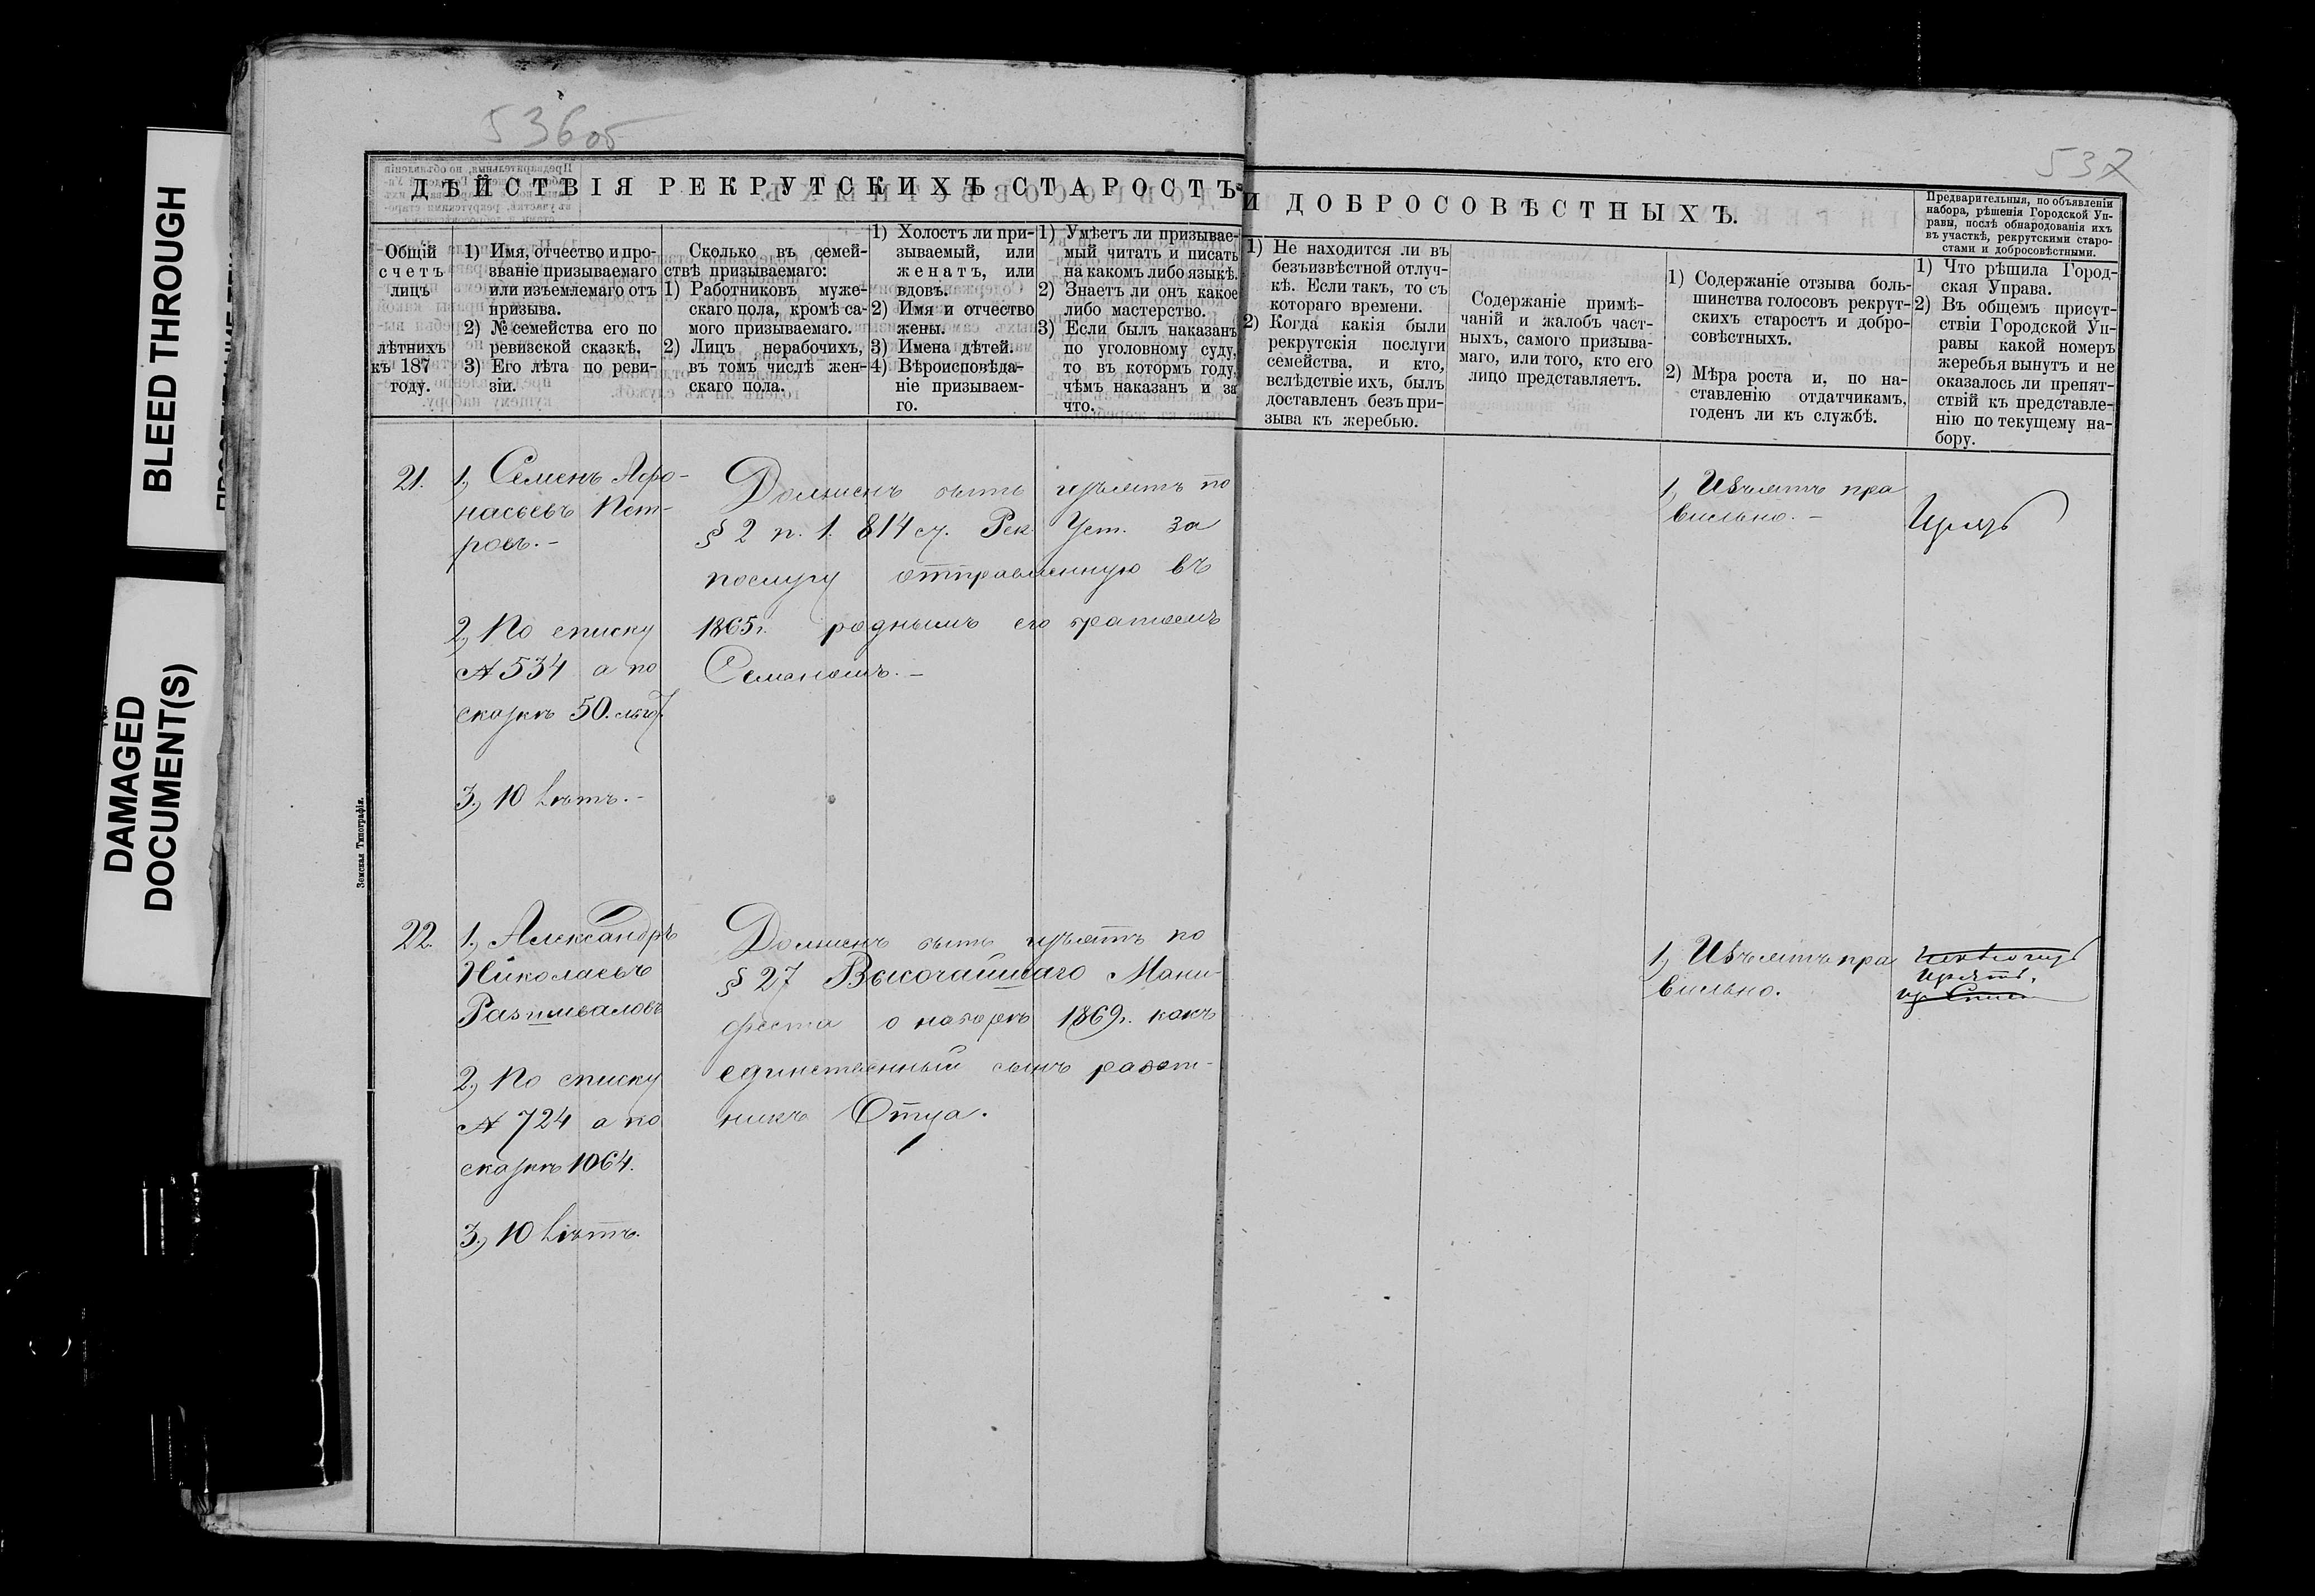 BLEED THROUGH
DAMAGED
DOCUMENT(S)
536об
537
ДѢЙСТВІЯ РЕКРУТСКИХЪ СТАРОСТЪ
И ДОБРОСОВѢСТНЫХЪ.
Предварительныя, по объявленіи
набора, рѣшенія Городской Уп-
равы, послѣ обнародованія ихъ
въ участкѣ, рекрутскими старо-
стами и добросовѣстными.
Общій
счетъ
лицъ
лѣтнихъ
къ 187
году.
1) Имя, отчество и про-
званіе призываемаго
или изъемлемаго отъ
призыва.
2) № семейства его по
ревизской сказкѣ.
3) Его лѣта по реви-
зіи.
Сколько въ семей-
ствѣ призываемаго:
1) Работниковъ муже-
скаго пола, кромѣ са-
мого призываемаго.
2) Лицъ нерабочихъ,
въ томъ числѣ жен-
скаго пола.
1) Холостъ ли при-
зываемый, или
женатъ, или
вдовъ.
2) Имя и отчество
жены.
3) Имена дѣтей.
4) Вѣроисповѣда-
ніе призываем-
го.
1) Умѣетъ ли призывае-
мый читать и писать
на какомъ либо языкѣ.
2) Знаетъ ли онъ какое
либо мастерство.
3) Если былъ наказанъ
по уголовному суду,
то въ которм году,
чѣмъ наказанъ и за
что.
1) Не находится ли въ
безъизвѣстной отлуч-
кѣ. Если такъ, то съ
котораго времени.
2) Когда какія были
рекрутскія послуги
семейства, и кто,
вслѣдствіе ихъ, былъ
доставленъ безъ при-
зыва къ жеребью.
Содержаніе примѣ-
чаній и жалобъ част-
ныхъ, самого призыва-
маго, или того, кто его
лицо представляетъ.
1) Содержаніе отзыва боль-
шинства голосовъ рекрут-
скихъ старостъ и добро-
совѣстныхъ.
2) Мѣра роста и, по на-
ставленію отдатчикамъ,
годенъ ли къ службѣ.
1) Что рѣшила Город-
ская Управа.
2) Въ общемъ присут-
ствіи Городской Уп-
равы какой номеръ
жеребья вынутъ и не
оказалось ли препят-
ствій къ представле-
нію по текущему на-
бору.
21.
1, Семенъ Афо-
насьевъ Пет-
ровъ.-
2, По списку
№ 534 а по
сказкѣ 50.
3, 10 лѣтъ.-
Долженъ быть изъятъ по
§ 2 п. 1. 814 ст. Рек. Уст. за
послугу отправленную въ
1865г. роднымъ его братомъ
Семеномъ.-
1, Изъятъ пра
вильно.-
22.
1, Александръ
Николаевъ
2, По списку
№ 724 а по
сказкѣ 1064.
3, 10 лѣтъ.
Долженъ быть изъятъ по
§ 27 Высочайшаго Мани-
феста о наборѣ 1869г. какъ
единственный сынъ работ-
никъ Отца.
1, Изъятъ пра
вильно.
Изъятъ.
Земская Типографія.